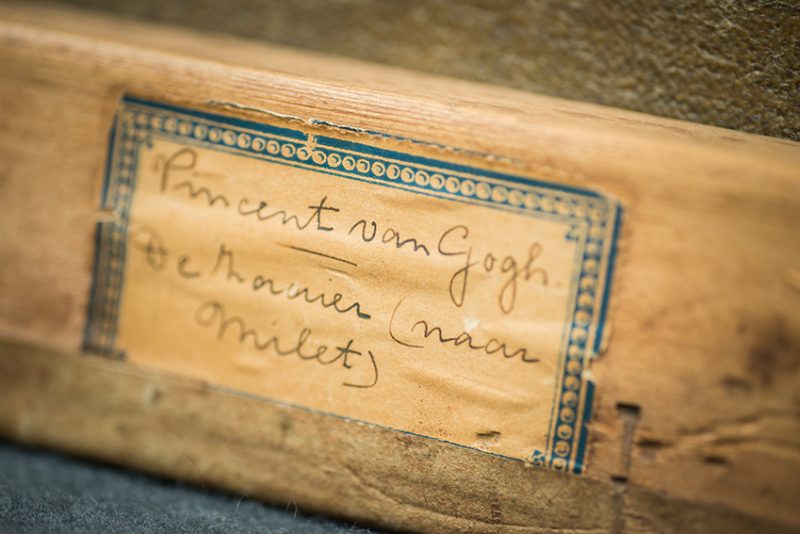 Vincent van Gogh.
De Maaier (naar
Milet)